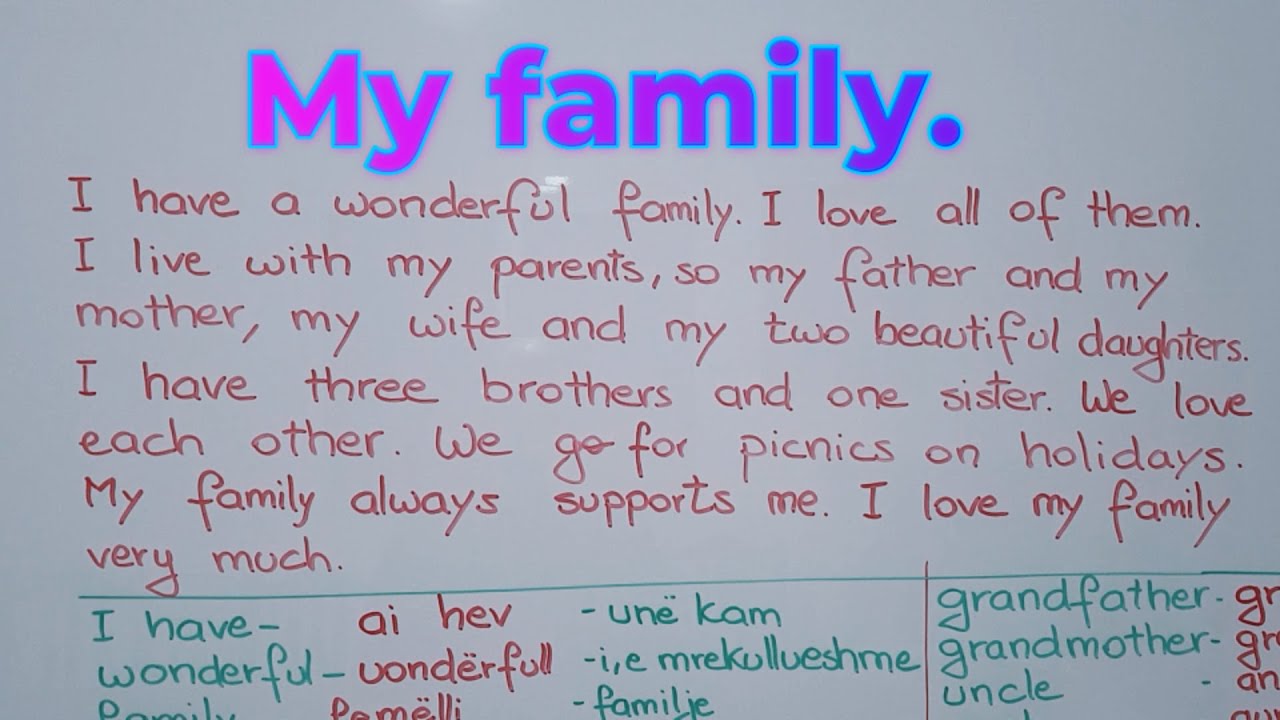 My family.
I have a wonderful family. I love all of them.
I live with my parents, so my father and my
mother, my wife and my two beautiful daughters.
I have three brothers and one sister. We love
each other. We go for picnics on holidays.
My family always supports me. I love my family
very much.
I have - ai hev - unë kam
wonderful - uondërfull - i,e mrekullueshme
family femëlli - familje
grandfather - gr
grandmother - gr
uncle - an